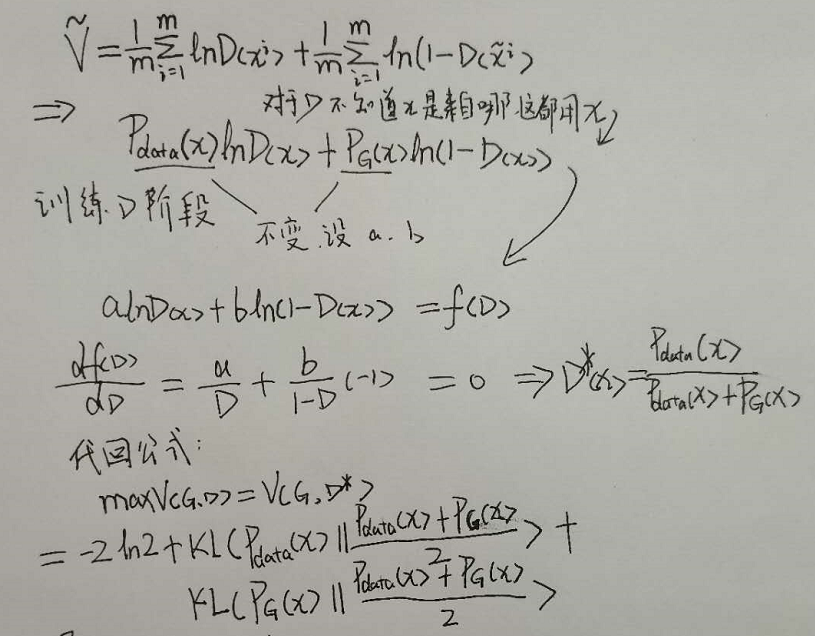 Ṽ = 1/m Σ_{i=1}^{m} lnD(x^i) + 1/m Σ_{i=1}^{m} ln(1-D(x̃^i)
⇒ 对于D不知道x是来自哪,这都用x
P_data(x)lnD(x) + P_G(x)ln(1-D(x))
训练D阶段
不变.设 a.b
alnD(x) + bln(1-D(x)) = f(D)
df(D)/dD = a/D + b/(1-D) (-1) = 0 ⇒ D*(x) = P_data(x)/(P_data(x)+P_G(x)
代回公式:
maxV(G,D) = V(G,D*)
= -2ln2 + KL(P_data(x) || (P_data(x)+P_G(x))/2) +
KL(P_G(x) || (P_data(x)+P_G(x))/2)